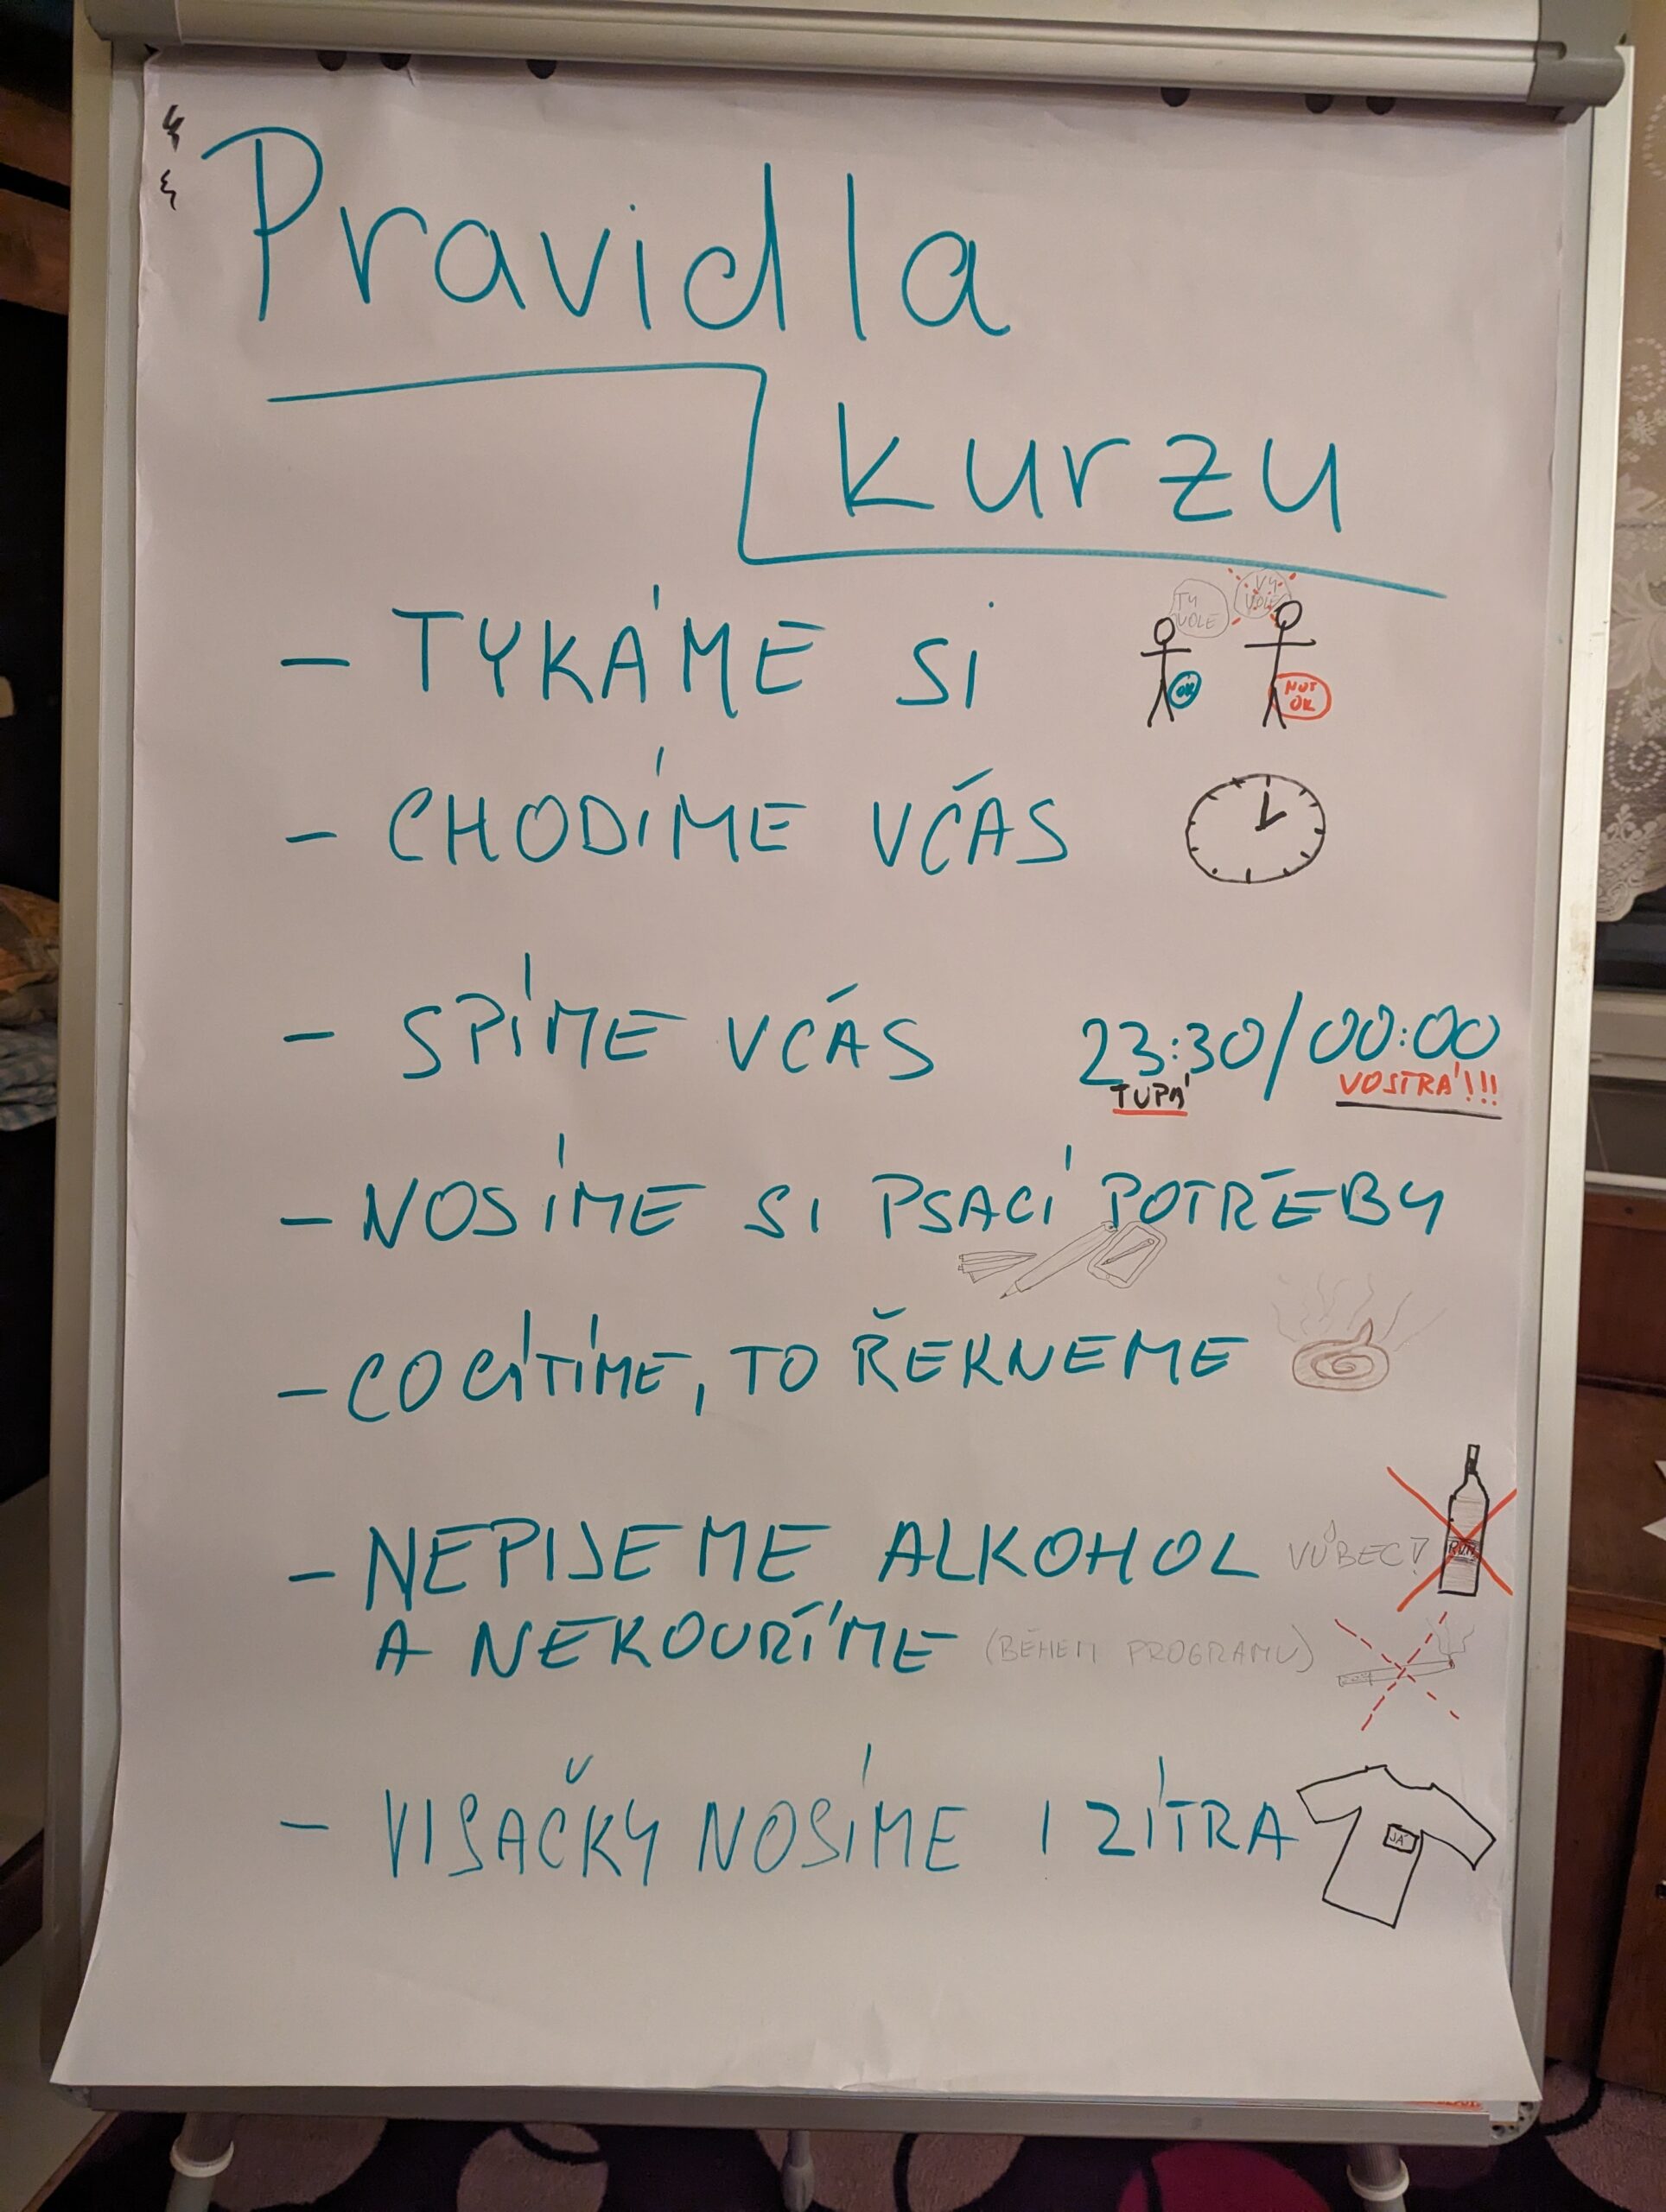 Pravidla
kurzu
TY VOLE
VY VOLE
- TYKÁME SI
OK
NOT OK
- CHODÍME VČAS
- SPÍME VČAS 23:30/00:00
TUPÁ
VOSTRÁ!!!
- NOSÍME SI PSACÍ POTŘEBY
- CO CÍTÍME, TO ŘEKNEME
- NEPIJEME ALKOHOL VŮBEC!
RUM
A NEKOUŘÍME (BĚHEM PROGRAMU)
- VISAČKY NOSÍME I ZÍTRA
JÁ